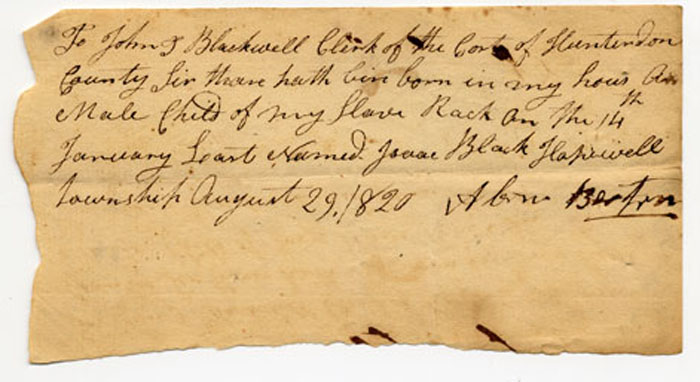 To John S Blackwell Clerk of the Cort of Hunterdon
County Sir thare hath bin born in my hous a
Male Child of my Slave Rach on the 14th
January Last Named Isaac Black Hopewell
township August 29, 1820